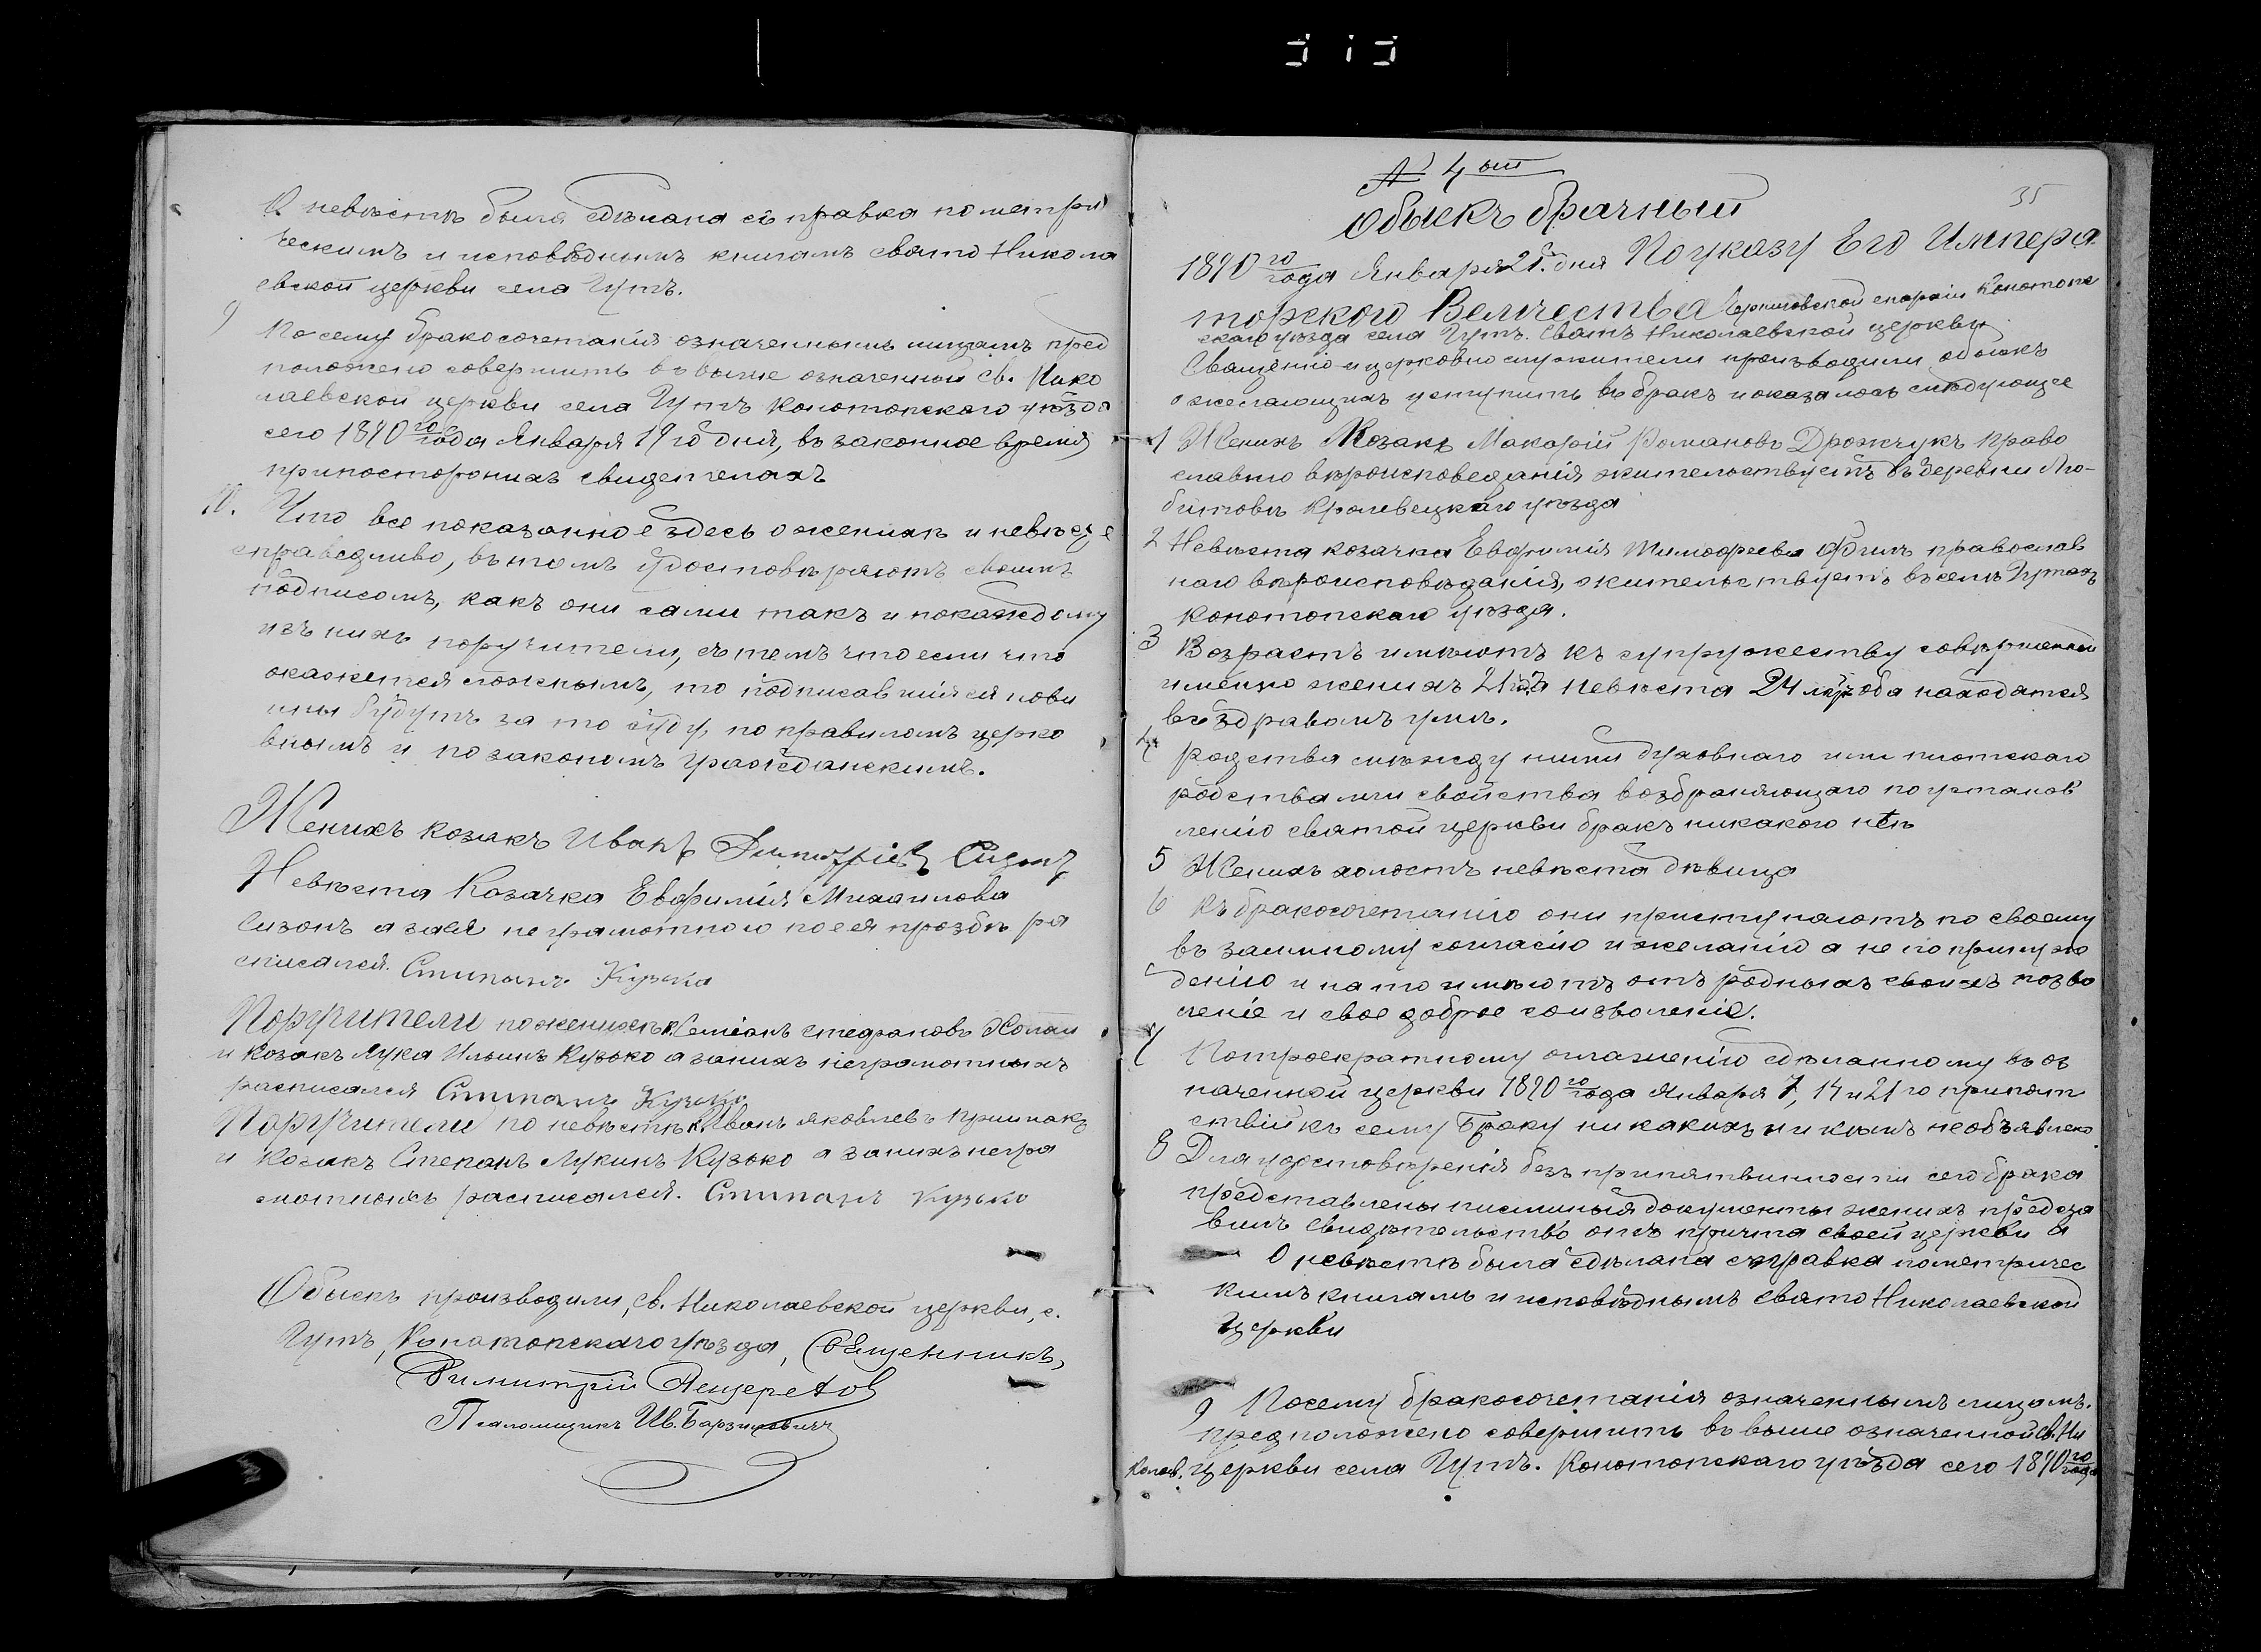 О невѣстѣ была сдѣлана справка по метри
ческимъ и исповѣднымъ книгамъ свято Никола
евской церкви села Гутъ.
9 По сему бракосочетанія означеннымъ лицамъ пред
положено совершить въ выше означенной Св. Нико
лаевской церкви села Гутъ Конотопскаго уѣзда
сего 1890 го года Января 19 го дня, въ законное время
при постороннихъ свидетелахъ
10. Что все показанное здесь о женихѣ и невѣсте
справедливо, въ томъ удостовѣряютъ своимъ
подписомъ, какъ они сами такъ и по каждому
изъ нихъ поручители, съ темъ что если что
окажется ложнымъ, то подписавшіяся пови
нны будутъ за то суду, по правиломъ церко
внымъ и по закономъ гражданскимъ.
Женихъ козакъ Иванъ Димитріевъ
Невѣста Козачка Евфимія Михаилова
Сизонъ а за нея неграмотною по ея прозбѣ ра
списался. Стипанъ Кузько
Поручители по женихѣ к. Семіонъ Стефановъ
и козакъ Лука Ильинъ Кузько а за нихъ неграмотныхъ
расписался Стипанъ Кузько
Поручители по невѣстѣ к. Иванъ Яковлевъ Приймакъ
и козакъ Степанъ Лукинъ Кузько а за нихъ негра
мотныхъ расписался. Стипанъ Кузько
Обыскъ производили, Св. Николаевской церкви, с.
Гутъ, Конотопскаго уѣзда, Священникъ,
Димитрій
Псаломщикъ Ив. Барзиловичъ
№ 4 ый
35
Обыскъ брачный
1890 го года Января 21. дня По указу Его Импера
торскаго Величества Черниговской епархіи Конотопс
скаго уѣзда села Гутъ. Святъ Николаевской церкви
Священно и церковно служители произъводили обыскъ
о желающихъ уступить въ бракъ и оказалось слѣдующее
1 Женихъ Козакъ Макарій Романовъ Дрожчукъ право
славно вѣроисповеданія жительствуетъ въ деревни Лю-
битовѣ Кролевецкаго уѣзда
2 Невѣста козачка Евфимія Тимофеева православ
наго вѣроисповѣданія, жительствуетъ въ селѣ Гутахъ
Конотопскаго уѣзда.
3 Возрастъ имѣютъ къ супружеству совершенный
именно женихъ 21 невѣста 24 лѣтъ оба находятся
въ здравомъ умѣ.
4 родства между ними духовнаго или плотскаго
родства или свойства возбраняющаго по установ
ленію святой церкви бракъ никакого нѣтъ
5 Женихъ холостъ невѣста дѣвица
6 Къ бракосочетанію они приступаютъ по своему
въ заимному согласію и желанію а не по принуж
денію и на то имѣютъ отъ родныхъ своихъ позво
леніе и свое доброе соизволеніе.
7 По троекратному оглашенію сдѣланному въ оз
наченной церкви 1890 го года Января 7, 14 и 21 го препят
ствій къ сему Браку никакихъ никѣмъ не объявлено
8 Для удостовѣренія безъ препятвинности сего брака
представлены писминыя документы женихъ предъя
вилъ свидѣтельство отъ причта своей церкви а
О невѣстѣ была сдѣлана справка по метричес
кимъ книгамъ и исповѣднымъ свято Николаевской
Церкви
9 Посему бракосочетанія означеннымъ лицамъ.
предположено совершить въ выше означенной Св. Ни
колаев. церкви села Гутъ. Конотопскаго уѣзда сего 1890 го года